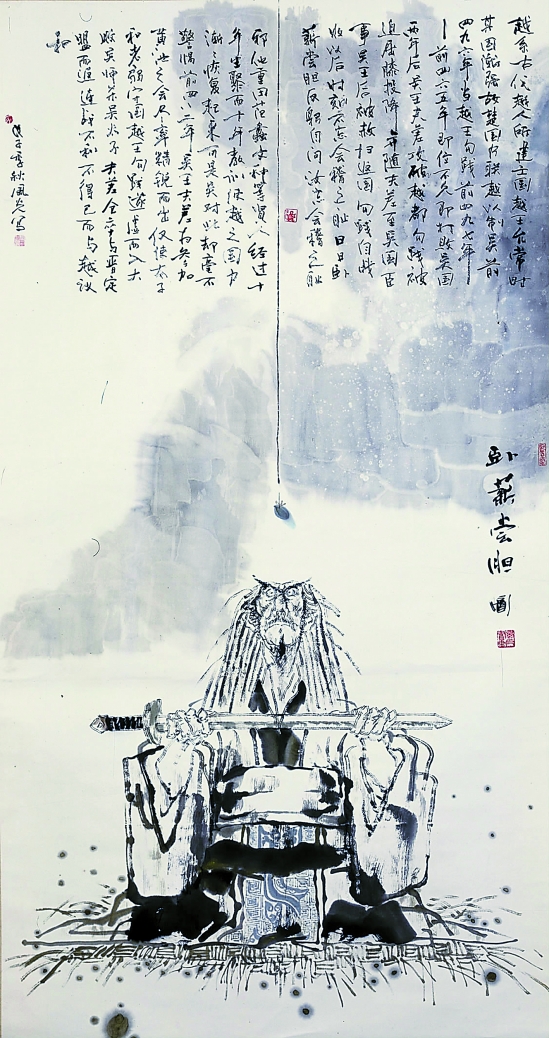 越系古代越人所建立国越王允常时
其国渐强故楚国约联越以制吴前
四九六年当越王句践前四九七年
一前四六五年即位不久即打败吴国
两年后吴王夫差攻破越都句践被
迫屈膝投降并随夫差至吴国臣
事吴王后被赦归返国句践自战
败以后时刻不忘会稽之耻日日卧
薪尝胆反躬自问汝忘会稽之耻
邪他重用范蠡文种等贤人经过十
年生聚而十年教训使越之国力
渐恢复起来而是吴对此却毫不
警惕前四八二年吴王夫差为参加
黄池之会尽率精锐而出仅使太子
和老弱守国越王句践遂乘虚而入大
败吴师杀吴太子夫差仓卒与晋定
盟而返连战不利不得已而与越议
和
戊子季秋风炎写
卧薪尝胆图